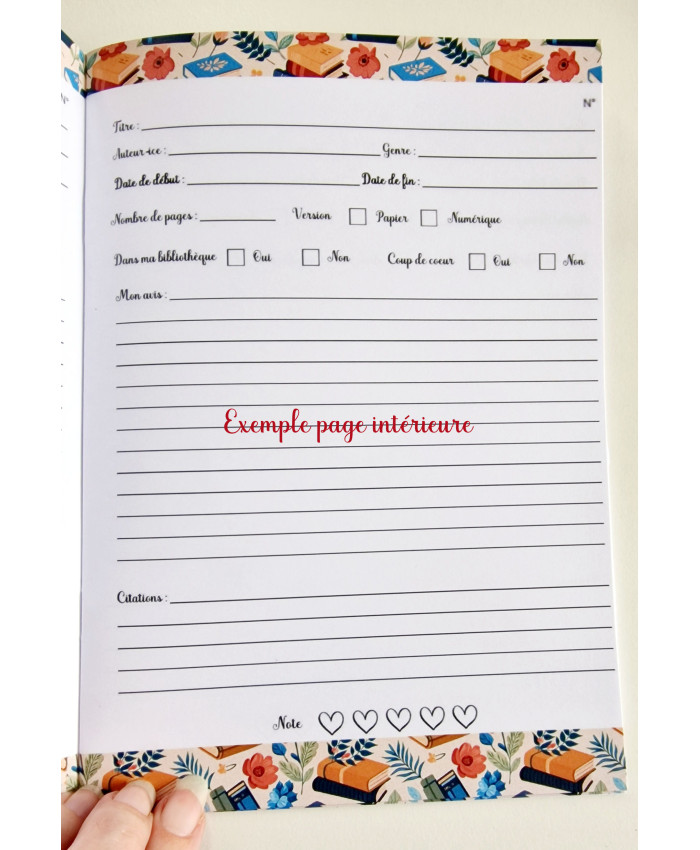 N°
N°
Titre :
Auteur·ice : Genre :
Date de début : Date de fin :
Nombre de pages : Version Papier Numérique
Dans ma bibliothèque Oui Non Coup de coeur Oui Non
Mon avis :
Exemple page intérieure
Citations :
Note